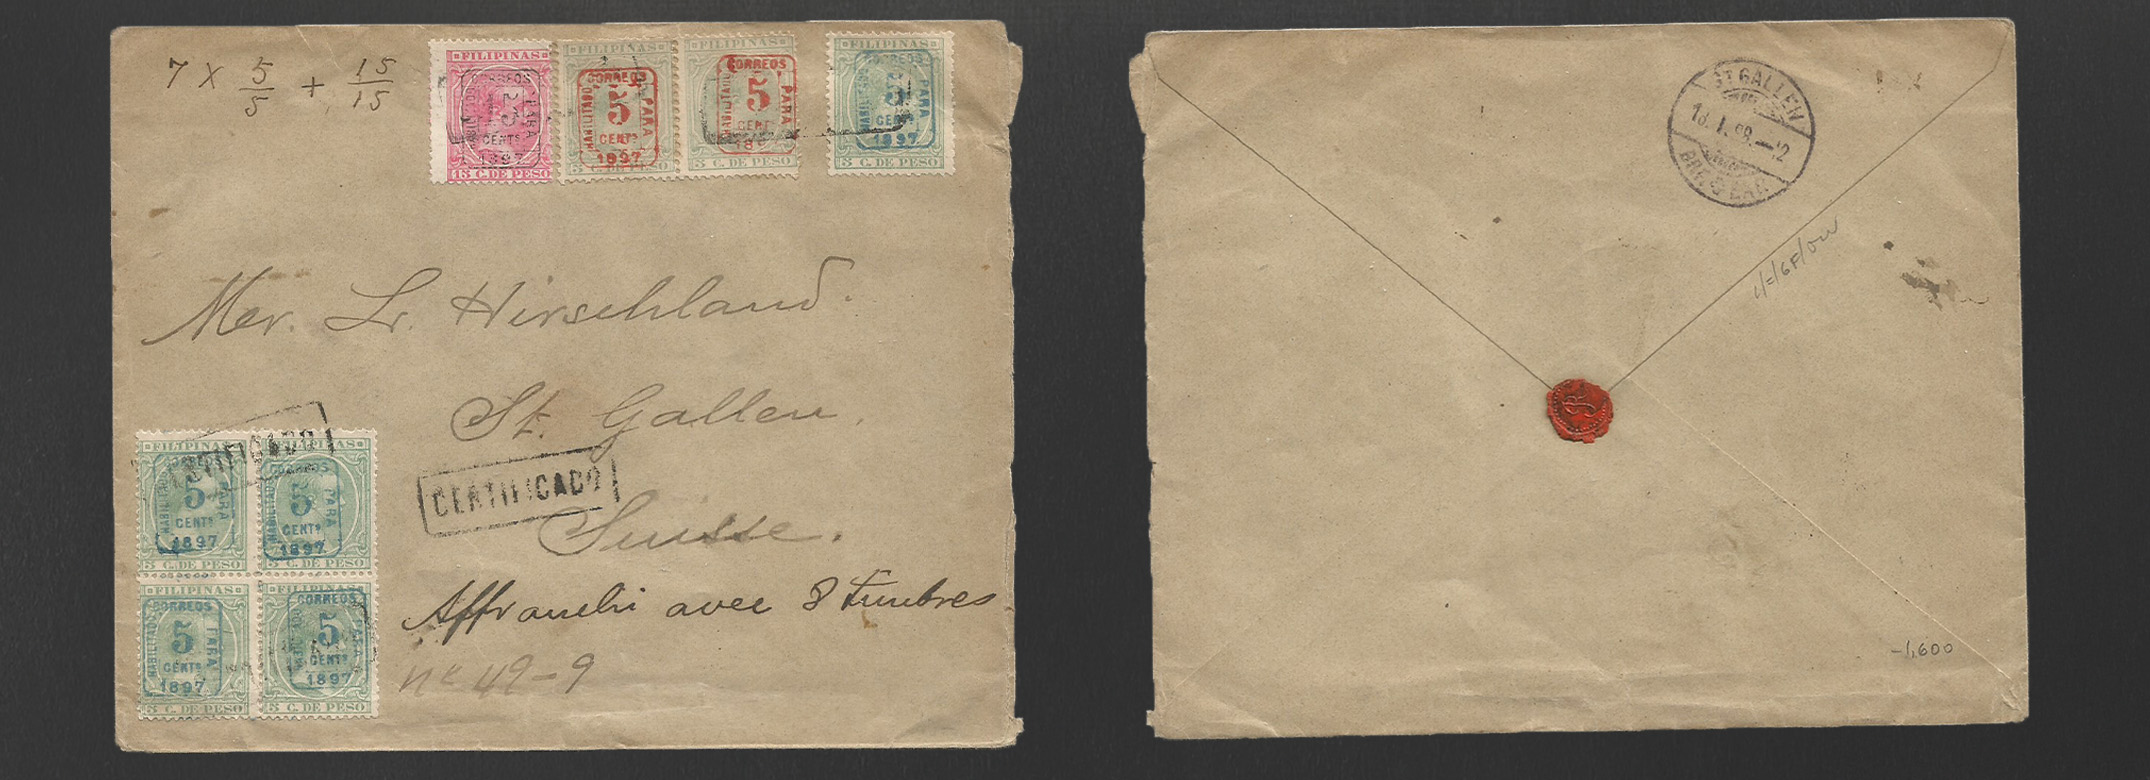 7 x 5/5 + 15/15
FILIPINAS FILIPINAS FILIPINAS FILIPINAS
CORREOS CORREOS CORREOS
HABILITADO PARA HABILITADO PARA HABILITADO PARA HABILITADO PARA
5 5 5
CENTS CENTS CENTS
1897 1897 1897
15 C. DE PESO 5 C. DE PESO 5 C. DE PESO 5 C. DE PESO
Mer. Lr. Hirschland.
St. Gallen.
CERTIFICADO
CERTIFICADO
Suisse.
FILIPINAS FILIPINAS
CORREOS
HABILITADO PARA HABILITADO PARA
5 5
CENTS CENTS
1897 1897
5 C. DE PESO 5 C. DE PESO
FILIPINAS FILIPINAS
CORREOS CORREOS
HABILITADO PARA HABILITADO
5 5
CENTS CENTS
1897 1897
5 C. DE PESO 5 C. DE PESO
Affranchi avec 8 timbres
No 49-9
ST GALLEN
13.I.98.—12
-1,600